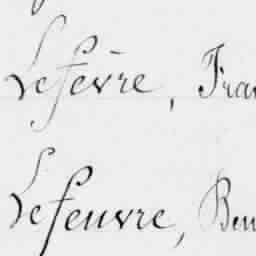 Lefèvre, Fran
Lefeuvre, Ben